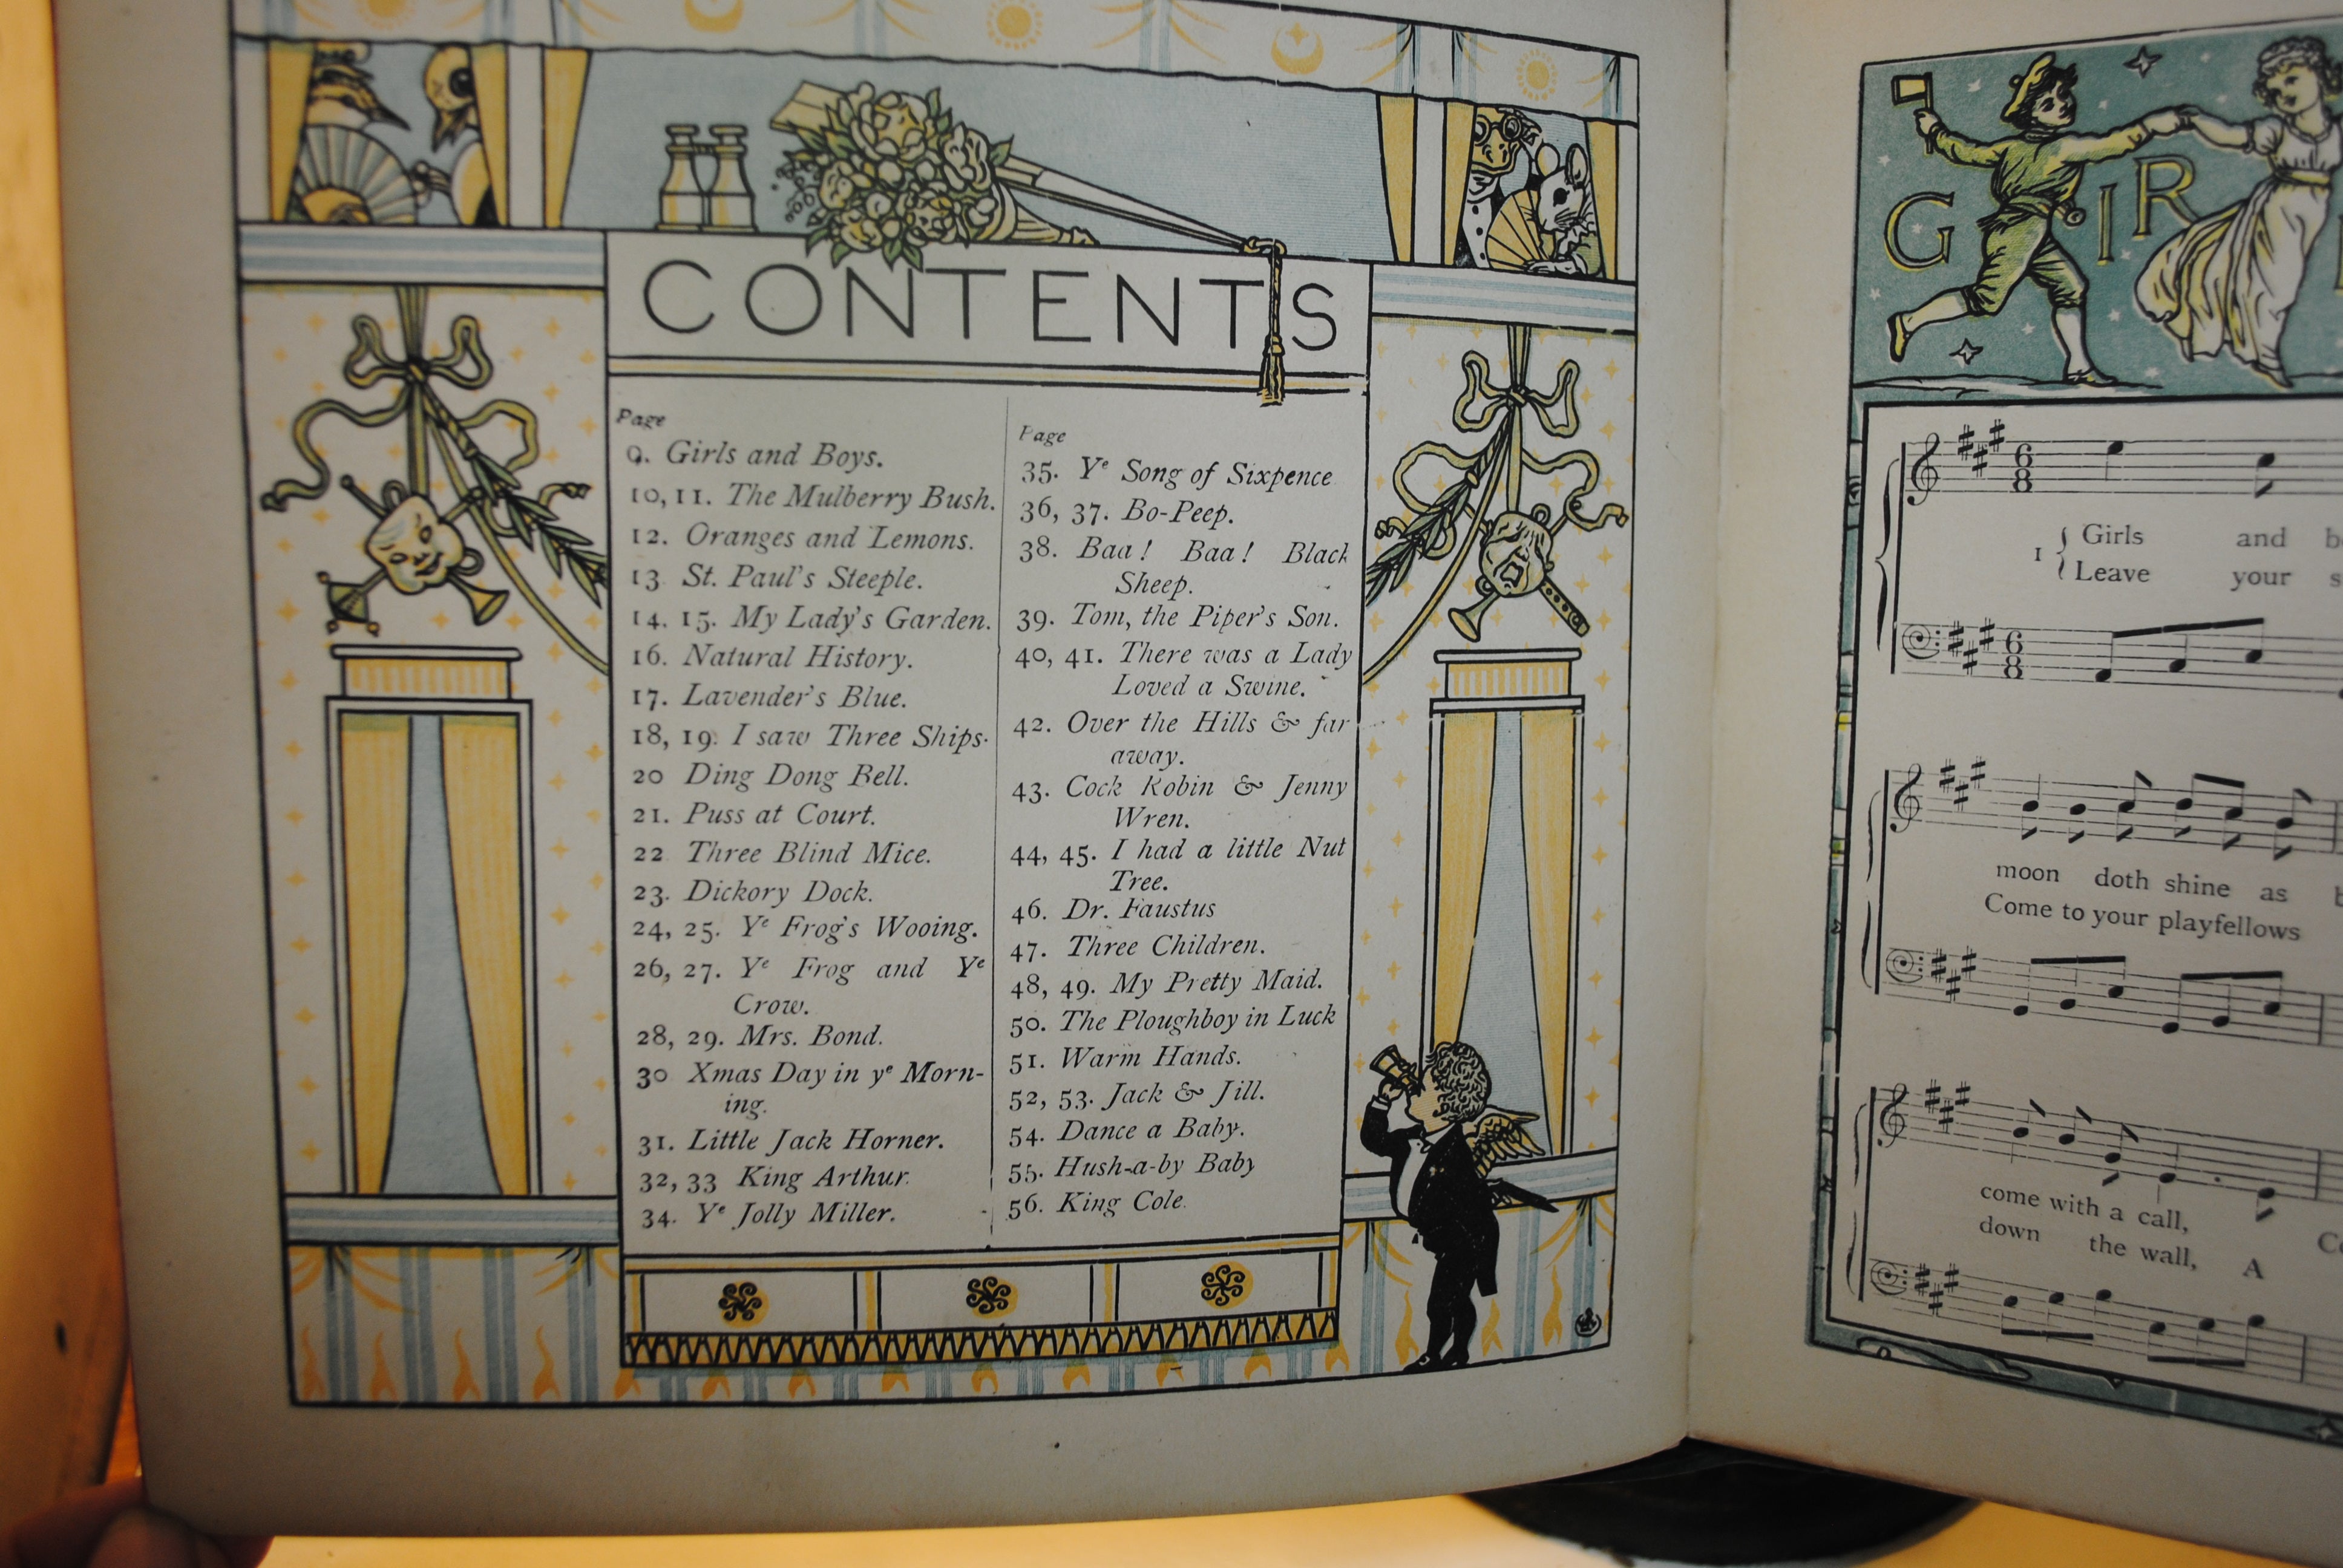 CONTENTS
Page
9. Girls and Boys.
10, 11. The Mulberry Bush.
12. Oranges and Lemons.
13 St. Paul's Steeple.
14, 15. My Lady's Garden.
16. Natural History.
17. Lavender's Blue.
18, 19. I saw Three Ships.
20 Ding Dong Bell.
21. Puss at Court.
22 Three Blind Mice.
23. Dickory Dock.
24, 25. Ye Frog's Wooing.
26, 27. Ye Frog and Ye
Crow.
28, 29. Mrs. Bond.
30 Xmas Day in ye Morn-
ing.
31. Little Jack Horner.
32, 33 King Arthur.
34. Ye Jolly Miller.
Page
35. Ye Song of Sixpence
36, 37. Bo-Peep.
38. Baa! Baa! Black
Sheep.
39. Tom, the Piper's Son.
40, 41. There was a Lady
Loved a Swine.
42. Over the Hills & far
away.
43. Cock Robin & Jenny
Wren.
44, 45. I had a little Nut
Tree.
46. Dr. Faustus
47. Three Children.
48, 49. My Pretty Maid.
50. The Ploughboy in Luck
51. Warm Hands.
52, 53. Jack & Jill.
54. Dance a Baby.
55. Hush-a-by Baby
56. King Cole.
GIR
6
8
1 { Girls and
Leave your
6
8
moon doth shine as
Come to your playfellows
come with a call,
down the wall, A